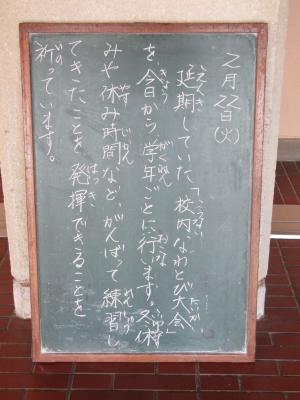 2月22日(火)
延期していた、「校内なわとび大会」
を、今日から、学年ごとに行います。冬休
みや休み時間など、がんばって練習し
てきたことを発揮できることを
祈っています。